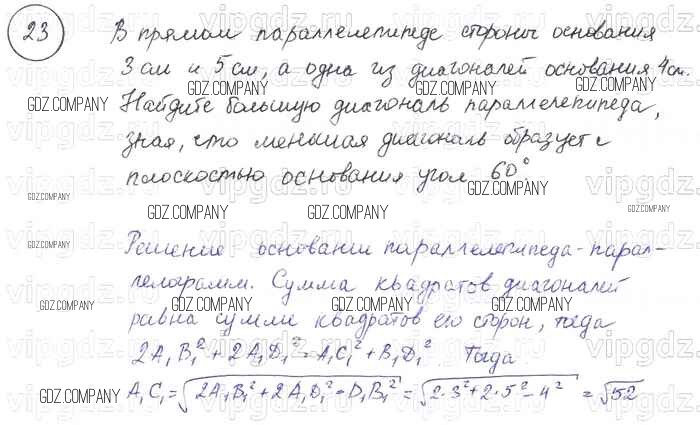 23
В прямом параллелепипеде стороны основания
3 см и 5 см, а одна из диагоналей основания 4 см.
Найдите большую диагональ параллелепипеда,
зная, что меньшая диагональ образует с
плоскостью основания угол 60°
Решение основании параллелепипеда - парал-
лелограмм. Сумма квадратов диагоналей
равна сумме квадратов его сторон, тогда
2A₁B₁² + 2A₁D₁² = A₁C₁² + B₁D₁² Тогда
A₁C₁ = √(2A₁B₁² + 2A₁D₁² - D₁B₁²) = √(2·3² + 2·5² - 4²) = √52
GDZ.COMPANY
vipgdz.ru